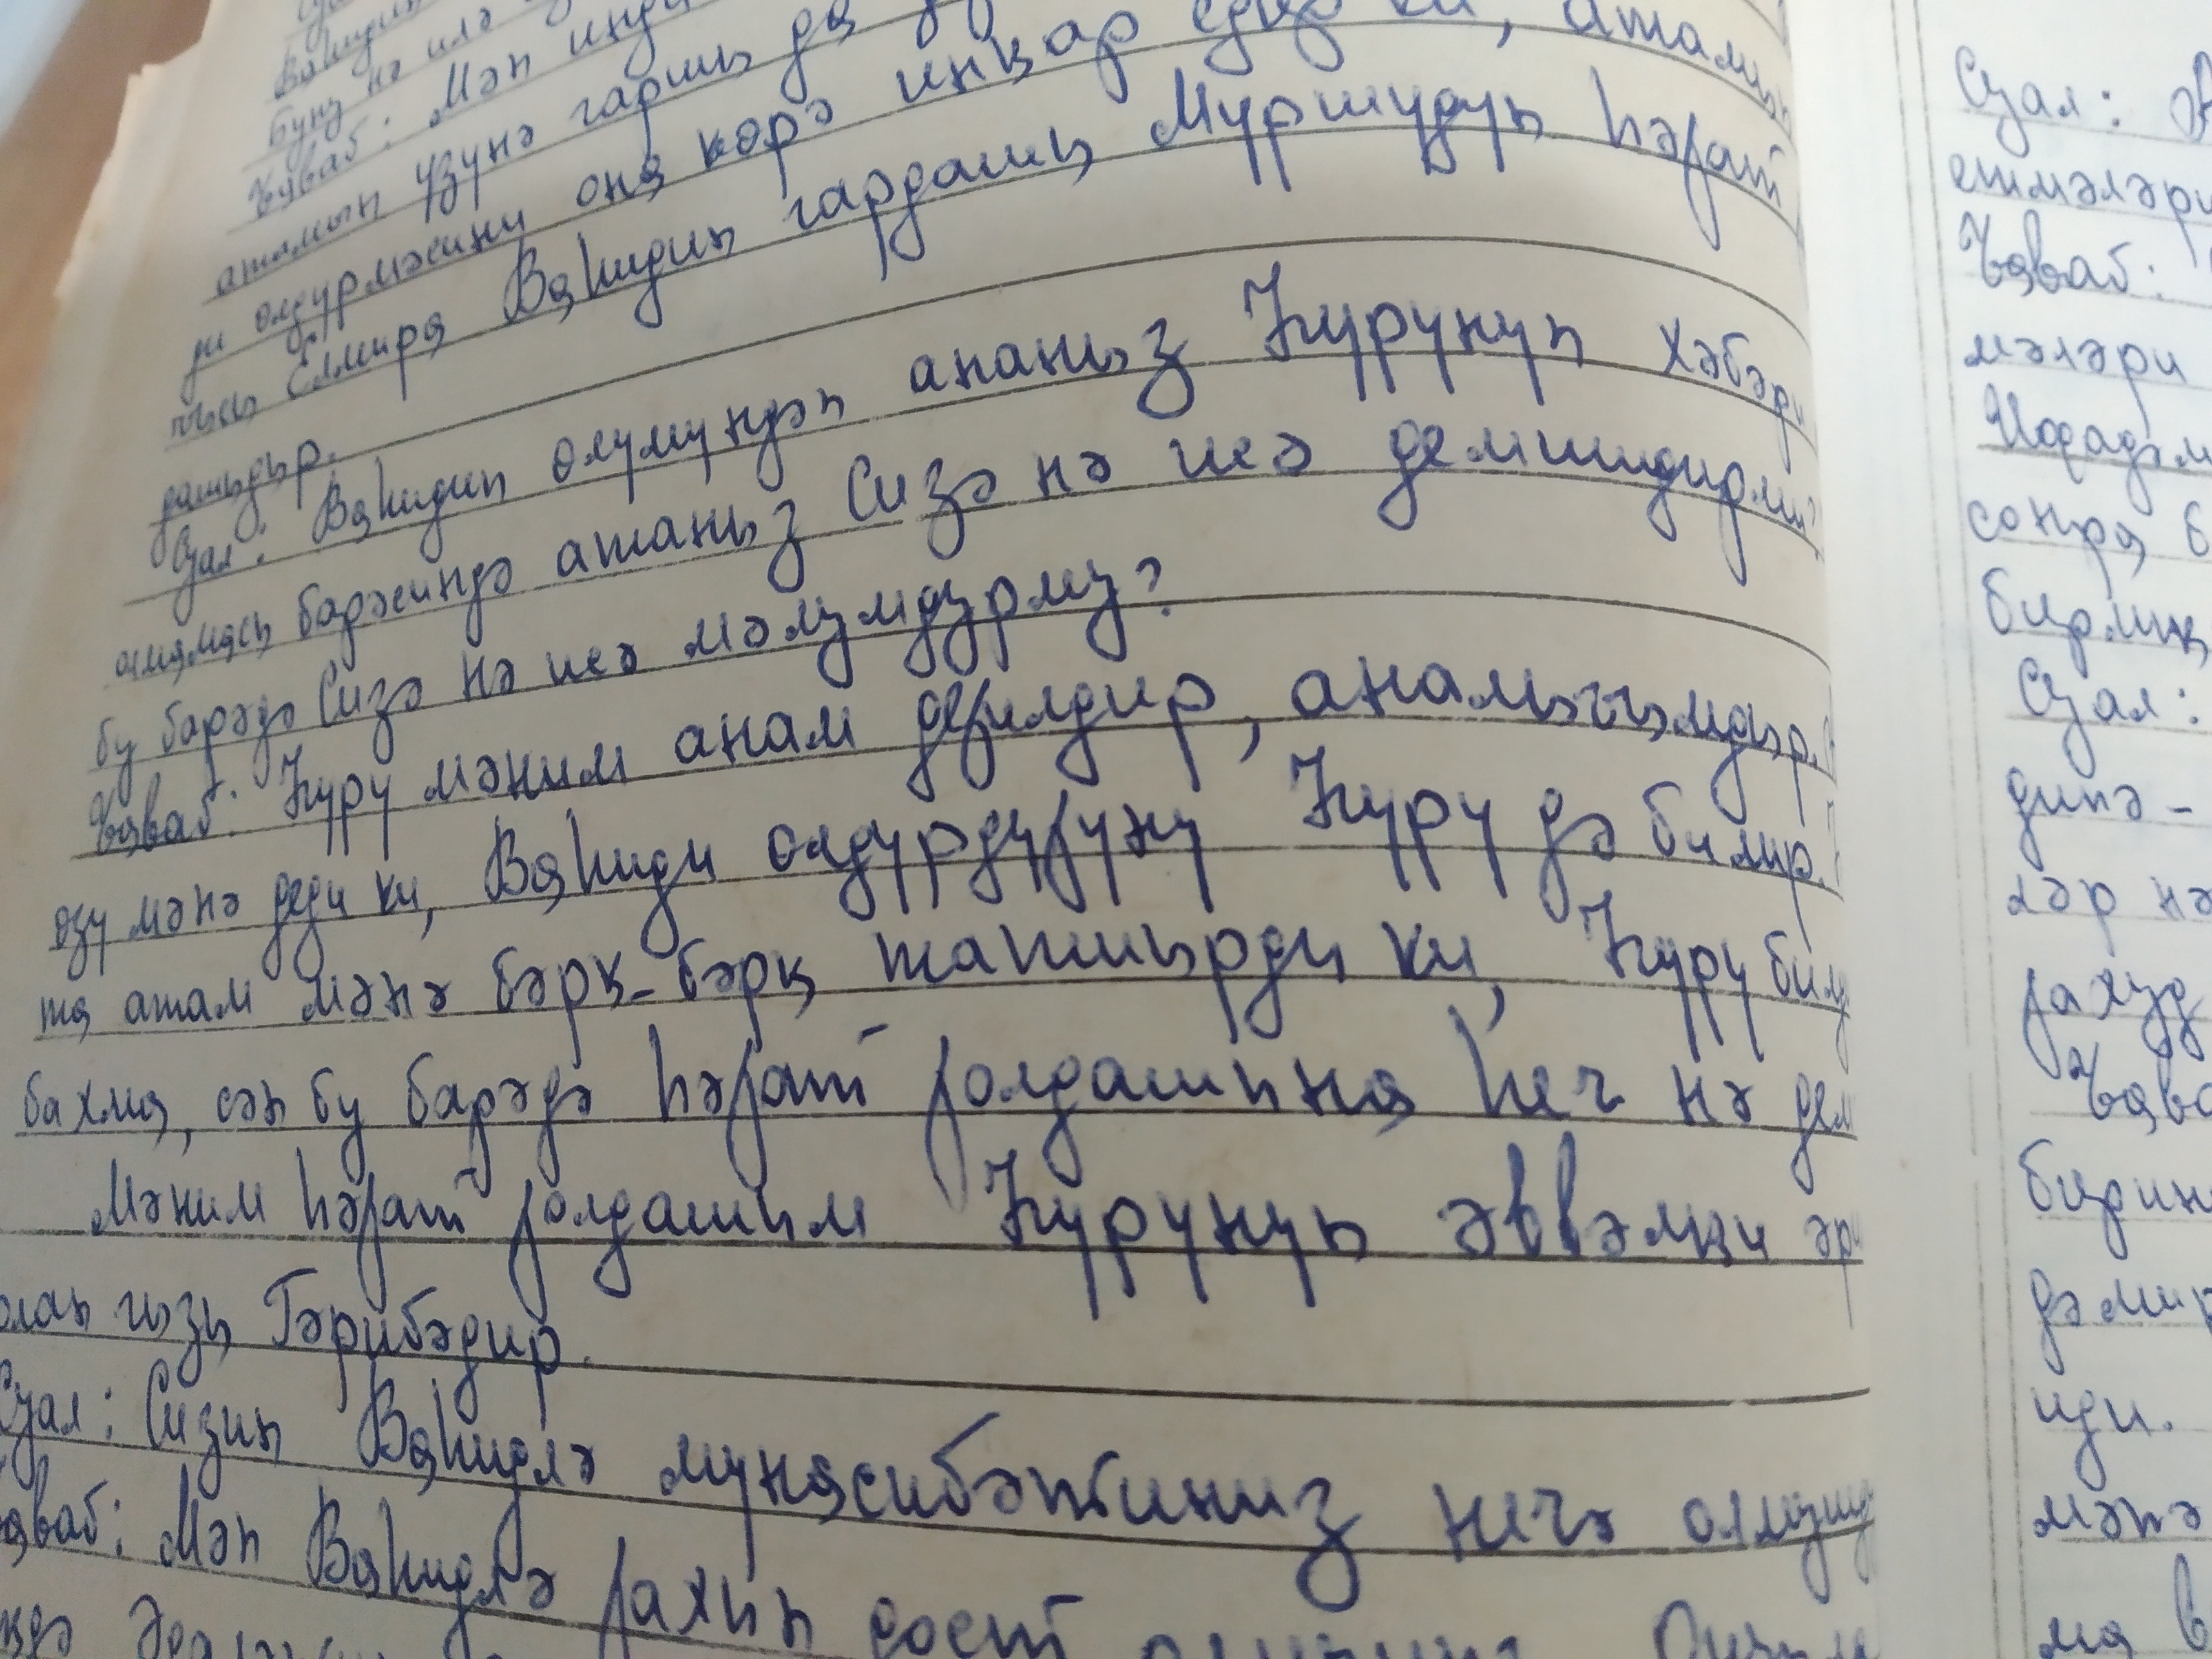 Бунү нә илә
Ҹаваб: Мән инди
атамын үзүнә гаршы да
ди өлдүрмәсини она ҝөрә инкар едир ки, атамын
нысы Елмира Ваһидин гардашы Мүршүдүн һәјат
дашыдыр.
Суал: Ваһидин өлүмүндән ананыз Һүрүнүн хәбәри
олмамасы барәсиндә атаныз Сизә нә исә демишдирми?
бу барәдә Сизә нә исә мәлумдурму?
Ҹаваб: Һүрү мәним анам дејилдир, аналығымдыр.
өзү мәнә деди ки, Ваһиди өлдүрдүјүнү Һүрү дә билир.
та атам мәнә бәрк-бәрк тапшырды ки, Һүрү билм
бахма, сән бу барәдә һәјат јолдашына һеч нә дем
Мәним һәјат јолдашым Һүрүнүн әввәлки әри
олан гызы Гәрибәдир.
Суал: Сизин Ваһидлә мүнасибәтиниз неҹә олмуш
Ҹаваб: Мән Ваһидлә јахын дост
Суал:
етмәләри
Ҹаваб:
мәләри
Ифадәм
сонра
бирлик
Суал:
динә-
ләр нә
јахуд
Ҹава
бирин
дәмир
иди.
мәнә
ма в